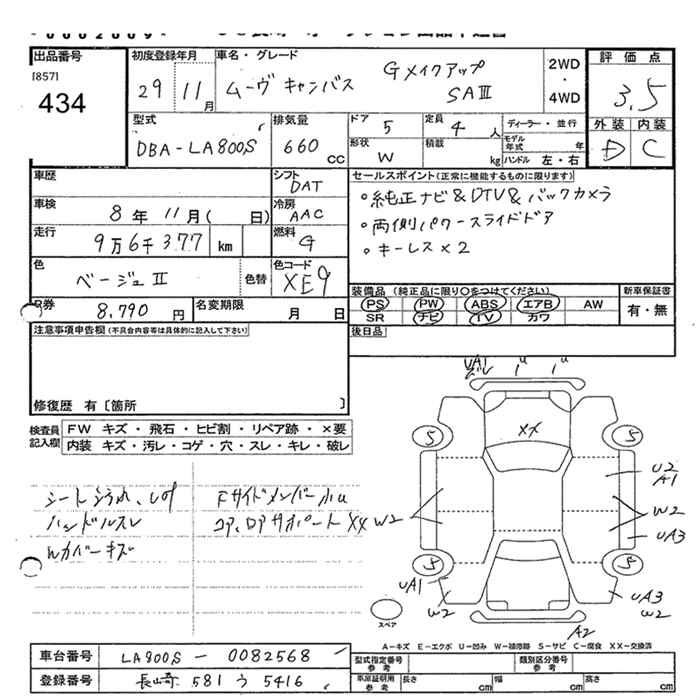 出品番号
[857]
434
初度登録年月
29 11月
車名・グレード
ムーヴキャンバス
Gメイクアップ
SAⅢ
2WD
・
4WD
評価点
3.5
外装 内装
D C
型式
DBA-LA800S
排気量
660 CC
ドア 5
形状 W
定員 4人
積載 kg
ディーラー・並行
モデル年式 年
ハンドル 左・右
車歴
シフト DAT
車検 8年11月( 日)
冷房 AAC
走行 9万6千377 km
燃料 G
色 ベージュⅡ
色替
色コード XE9
セールスポイント(正常に機能するものに限ります)
・純正ナビ&DTV&バックカメラ
・両側パワースライドドア
・キーレス×2
装備品(純正品に限り○をつけてください)
PS PW ABS エアB AW
SR ナビ TV カワ
新車保証書
有・無
R券 8,790円
名変期限 月 日
後日品
注意事項申告欄(不具合内容等は具体的に記入して下さい)
修復歴 有[箇所 ]
検査員記入欄
FW キズ・飛石・ヒビ割・リペア跡・×要
内装 キズ・汚レ・コゲ・穴・スレ・キレ・破レ
ハンドルスレ
コア、Dアサポート XX
UA1
XX
5
5
5
5
U2
A1
W2
W2
UA3
UA1
W2
UA3
W2
A2
スペア
A-キズ E-エクボ U-凹み W-補修跡 S-サビ C-腐食 XX-交換済
車台番号 LA800S-0082568
登録番号 長崎 581 う 5416
型式指定番号 参考
類別区分番号 参考
車庫証明用 参考
長さ cm
幅 cm
高さ cm